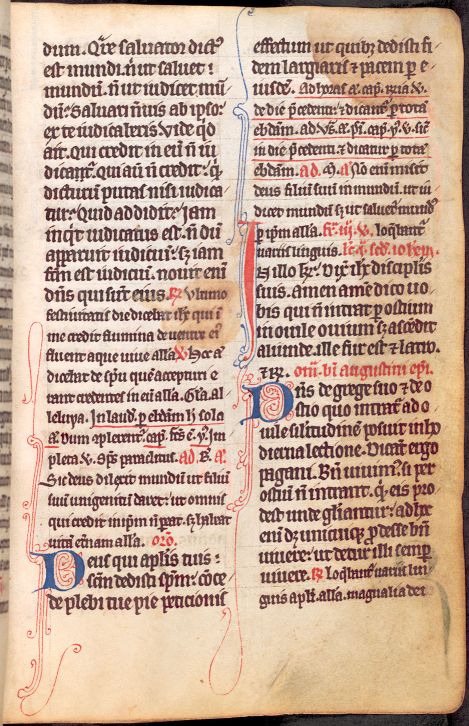 dum. Qre saluator dict9
est mundi. n ut saluet
mundu. n ut iudicet mū
dū. Saluari n uis ab ipso.
ex te iudicaberis. Vide qd
ait. Qui credit in eū n iu
dicatur. qui aū n credit. q
dicturū putas nisi iudica
tur. Quid addidit. Jam
inqt iudicatus est. nōdū
apparuit iudiciū. sz iam
ftm est iudiciū. nouit enī
dns qui sunt eius. Vltimo
festiuitatis die dicebat ihc qui i
me credit flumina de uentre ei9
fluent aque uiue alla. V hec a
dicebat de spu que accepturi e
rant credentes in eū alla. Gla. al
leluya. In laud. p ebdam h sola
a. Dum cplerentur. cap. Fcs e. y. Im
pleta. V. Sps paraclitus. ad B. a.
Sic deus dilexit mundū ut filiū
suū unigenitū daret. ut omnis
qui credit in ipm n peat. sz habeat
uitā etnam alla. oro.
Deus qui aplis tuis
scm dedisti spm. cōce
de plebi tue pie peticionis
effectum ut quibz dedisti fi
dem largiaris et pacem p e
iusde. Ad horas a. cap. Rria V.
de die pcedenti. et dicantr p totā
ebdam. ad Vs. a. ps. cap. y. V. sic
in die pcedenti et dicatur p totā
ebdam. ad. M. a. Nō enī misit
deus filiū suū in mundū. ut iu
dicet mundū sz ut saluetur mundus
p ipm alla. fr. iij. V. loqbantr
uariis linguis. Lc. i. scd. iohem.
In illo tpr. Dix ihc discipls
suis. amen amen dico uo
bis qui n intrat p ostium
in ouile ouium sz ascedit
aliunde. ille fur est et latro.
et R. om. bi augustini epi.
Dns de grege suo et de o
stio quo intratr ad o
uile similitudine posuit in ho
dierna lectione. Dicant ergo
pagani. Bn uiuim9. si per
ostiū n intrant. q eis pro
dest unde gliantur. ad hoc
enī dz unicuiqz pdesse bn
uiuere. ut detur illi semp
uiuere. loqbantr uariis lin
guis apli. alla. magnalia dei